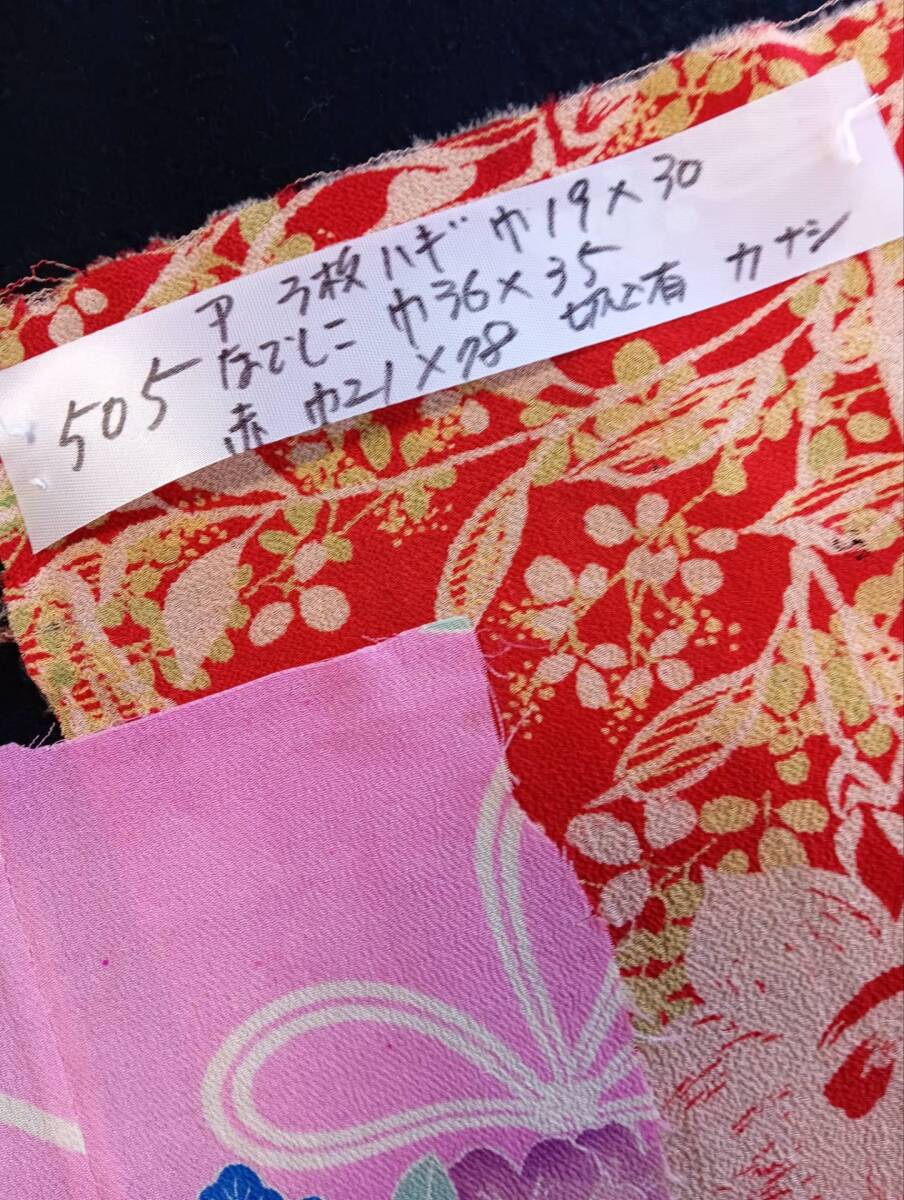 505
甲 3枚ハギ 巾19×30
なでしこ 巾36×35
赤 巾21×78 切込有 カナシ